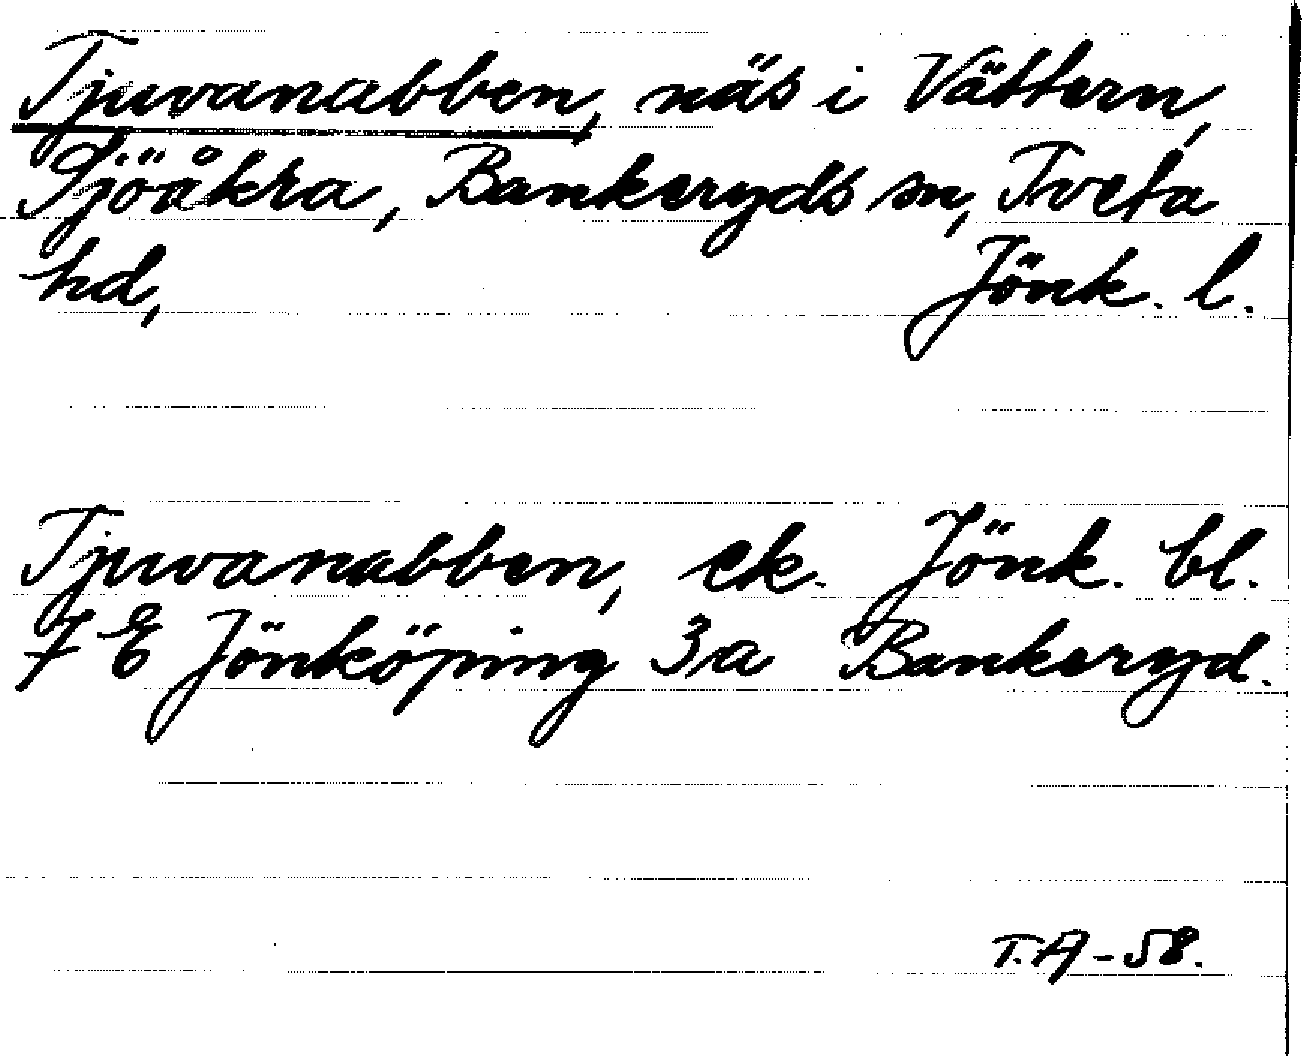 Tjuvanabben, näs i Vättern,
Sjöåkra, Bankeryds sn, Tveta
hd, Jönk. l.
Tjuvanabben, ek. Jönk. bl.
7 E Jönköping 3a Bankeryd.
T.A-58.